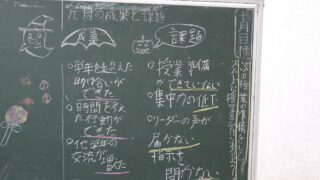 九月の成果と課題
成果
○学年を越えた
助け合いが
できた
○時間を考え
た行動が
できた
○他学年の
交流が増えた
課題
○授業準備
ができていない
○集中力の低下
○リーダーの声が
届かない
指示を
聞かない
十月目標
次の授業の準備をし